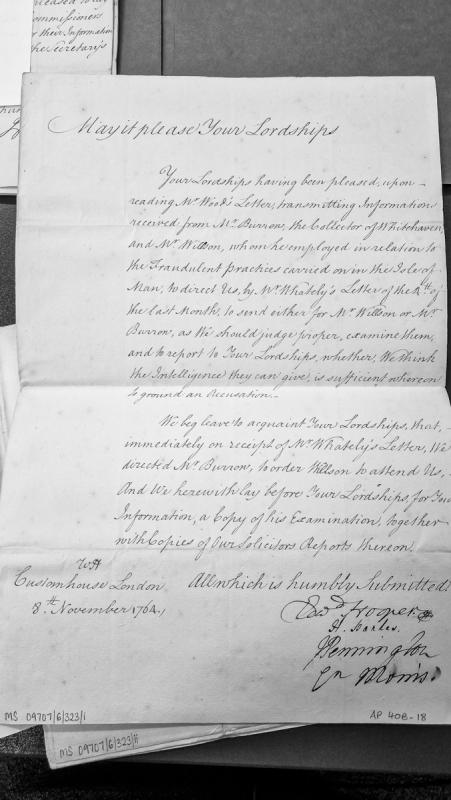 pleased to lay
Commissioners
or their Information
the Secretary's
May it please Your Lordships
Your Lordships having been pleased, upon
reading Mr. Wood's Letter, transmitting Information
received from Mr. Burrow, the Collector of Whitehaven
and Mr. Willson, whom he employed in relation to
the Fraudulent practices carried on in the Isle of
Man, to direct Us, by Mr. Whately's Letter of the th. of
the last Month, to send either for Mr. Willson or Mr.
Burrow, as We should judge proper, examine them,
and to report to Your Lordships, whether, We think
the Intelligence they can give, is sufficient whereon
to ground an Accusation.
We beg leave to acquaint Your Lordships, that,
immediately on receipt of Mr. Whately's Letter, We
directed Mr. Burrow, to order Willson to attend Us,
And We herewith lay before Your Lordships, for Your
Information, a Copy of his Examination, together
with Copies of Our Solicitors Reports thereon.
All which is humbly Submitted.
Customhouse London
8th. November 1764.
Edwd. Hooper
H. Banks.
J Pennington
Cn Morris.
MS 09707/6/323/i
AP 40B-18
MS 09707/6/323/ii